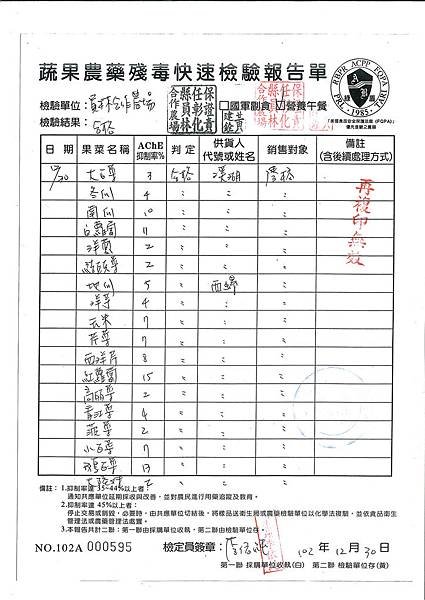 蔬果農藥殘毒快速檢驗報告單
檢驗單位：員林合作農場
保證責任彰化縣員林合作農場
□國軍副食 ☑營養午餐
檢驗結果：合格
RBPR ACPP FQPA
1985
TARI
「美國食品安全保護法案(FQPA)」
優先推動之農藥
日期 果菜名稱 AChE抑制率% 判定 供貨人代號或姓名 銷售對象 備註(含後續處理方式)
12/30 大白菜 3 合格 溪湖 學校
冬瓜 4 〃 〃 〃
南瓜 10 〃 〃 〃
白蘿蔔 11 〃 〃 〃
洋蔥 2 〃 〃 〃
2 〃 〃 〃
地瓜 5 〃 西螺 〃
洋芋 4 〃 〃 〃
玉米 7 〃 〃 〃
芹菜 7 〃 〃 〃
西洋芹 8 〃 〃 〃
紅蘿蔔 15 〃 〃 〃
高麗菜 2 〃 〃 〃
青江菜 4 〃 〃 〃
菠菜 2 〃 〃 〃
小白菜 7 〃 〃 〃
13 〃 〃 〃
再複印無效
備註：1.抑制率達 35~44%以上者：
通知共應單位延期採收與改善，並對農民進行用藥追蹤及教育。
2.抑制率達 45%以上者：
停止交易或銷毀，必要時，由共應單位切結後，將樣品送衛生局或農藥檢驗單位以化學法複驗，並依食品衛生
管理法或農藥管理法處置。
3.本報告共計二聯：第一聯由採購單位收執，第二聯由檢驗單位存。
NO.102A 000595 檢定員簽章： 102 年 12 月 30 日
第一聯 採購單位收執(白) 第二聯 檢驗單位存(黃)